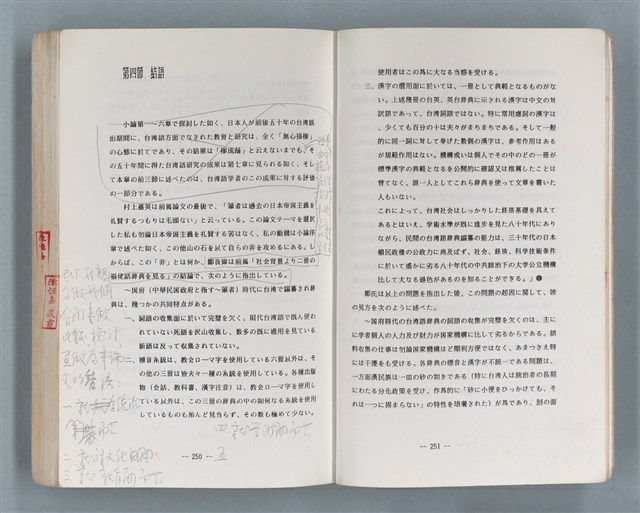 第四節　結語
小論第一～六章で探討した如く、日本人が前後五十年の台湾統
治期間に、台湾語方面でなされた教育と研究は、全く「無心挿柳」
の心態に於てであり、その結果は「柳成蔭」と云えないまでも、そ
の五十年間に得た台湾語研究の成果は第七章に見られる如く、そし
て本章の前三節に述べたのは、台湾語学者のこの成果に対する評価
の一部分である。
村上嘉英は前掲論文の最後で、「筆者は過去の日本帝国主義を
礼賛するつもりは毛頭ない」と云っている。この論文テーマを選択
した私も勿論日本帝国主義を礼賛する筈はなく、私の動機は小論序
章で述べた如く、この他山の石を以て自らの非を攻めにある。し
からば、この「非」とは何か、鄭良偉は前掲「社会背景より二冊の
福佬話辞典を見る」の論述で、次のように指出している。
～国府（中華民国政府と指す～筆者）時代に台湾で編纂され辞
典は、幾つかの共同特点がある。
一、詞語の収集面に於いて完璧を欠く。現代台湾語で既んど使わ
れていない死語を沢山収集し、数多の既に通用を見ている
新語は反って収集されていない。
二、標音系統は、教会ローマ字を使用している六冊以外は、そ
の他の三冊は皆夫々一種の系統を使用している。各種出版
物（会話、教科書、漢字注音）は、教会ローマ字を使用して
いる以外は、この三冊の辞典の中の如何なる系統を使用
しているものも殆んど見当らず、その数も極めて少ない。
-- 250 --
使用者はこの為に大なる当惑を受ける。
三、漢字の選用面に於いては、一冊として典範となるものがな
い。上述幾冊の台英、英台辞典に示される漢字は中文の対
訳語であって、台湾詞語ではない。特に常用虚詞の漢字は
、少くても百分の十は夫々がまちまちである。そして一般
的に同一詞に対して挙げた数個の漢字は、参考作用はある
が規範作用はない。機構或いは個人でその中のどの一冊が
標準漢字の典範となるを公開的に確認又は推薦したことは
曽てなく、誰一人としてこれら辞典を使って文章を書いた
人もいない。
これによって、台湾社会はしっかりした経済基礎を具えて
あるとはいえ、学術水準が既に進歩を見た八十年代にあり
ながら、民間の台湾語辞典編纂の能力は、三十年代の日本
植民政権の公致力に尚及ばず、社会、経済、科学技術条件
に於いて遙かに劣る八十年代の中共統治下の大学公立機構
に比して大なる遜色があるのを知ることができる。」
鄭氏は以上の問題を指出した後、この問題の起因に関して、彼
の見方を次のように述べた。
～国府時代の台湾語辞典の詞語の収集が完璧を欠くのは、主に
に学者個人の人力及び財力が国家機構に比して劣るからである。語
料収集の仕事は勿論国家機構ほど順利方便ではなく、あまつさえ時
には干擾をも受ける。各辞典の標音と漢字が不統一である問題は、
一方面漢民族は一団の砂の如きである（特に台湾人は統治者の長期
にわたる分化政策を受け、作為的に「砂に小便をひっかけても、そ
れは一つに固まらない」の特性を培養された）が為であり、別の面
-- 251 --